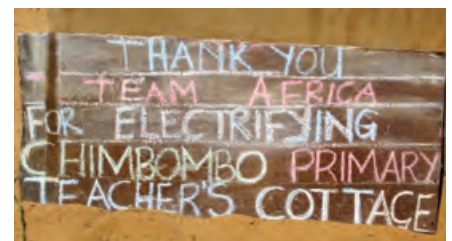 THANK YOU
- TEAM AFRICA
FOR ELECTRIFYING
CHIMBOMBO PRIMARY
TEACHER'S COTTAGE